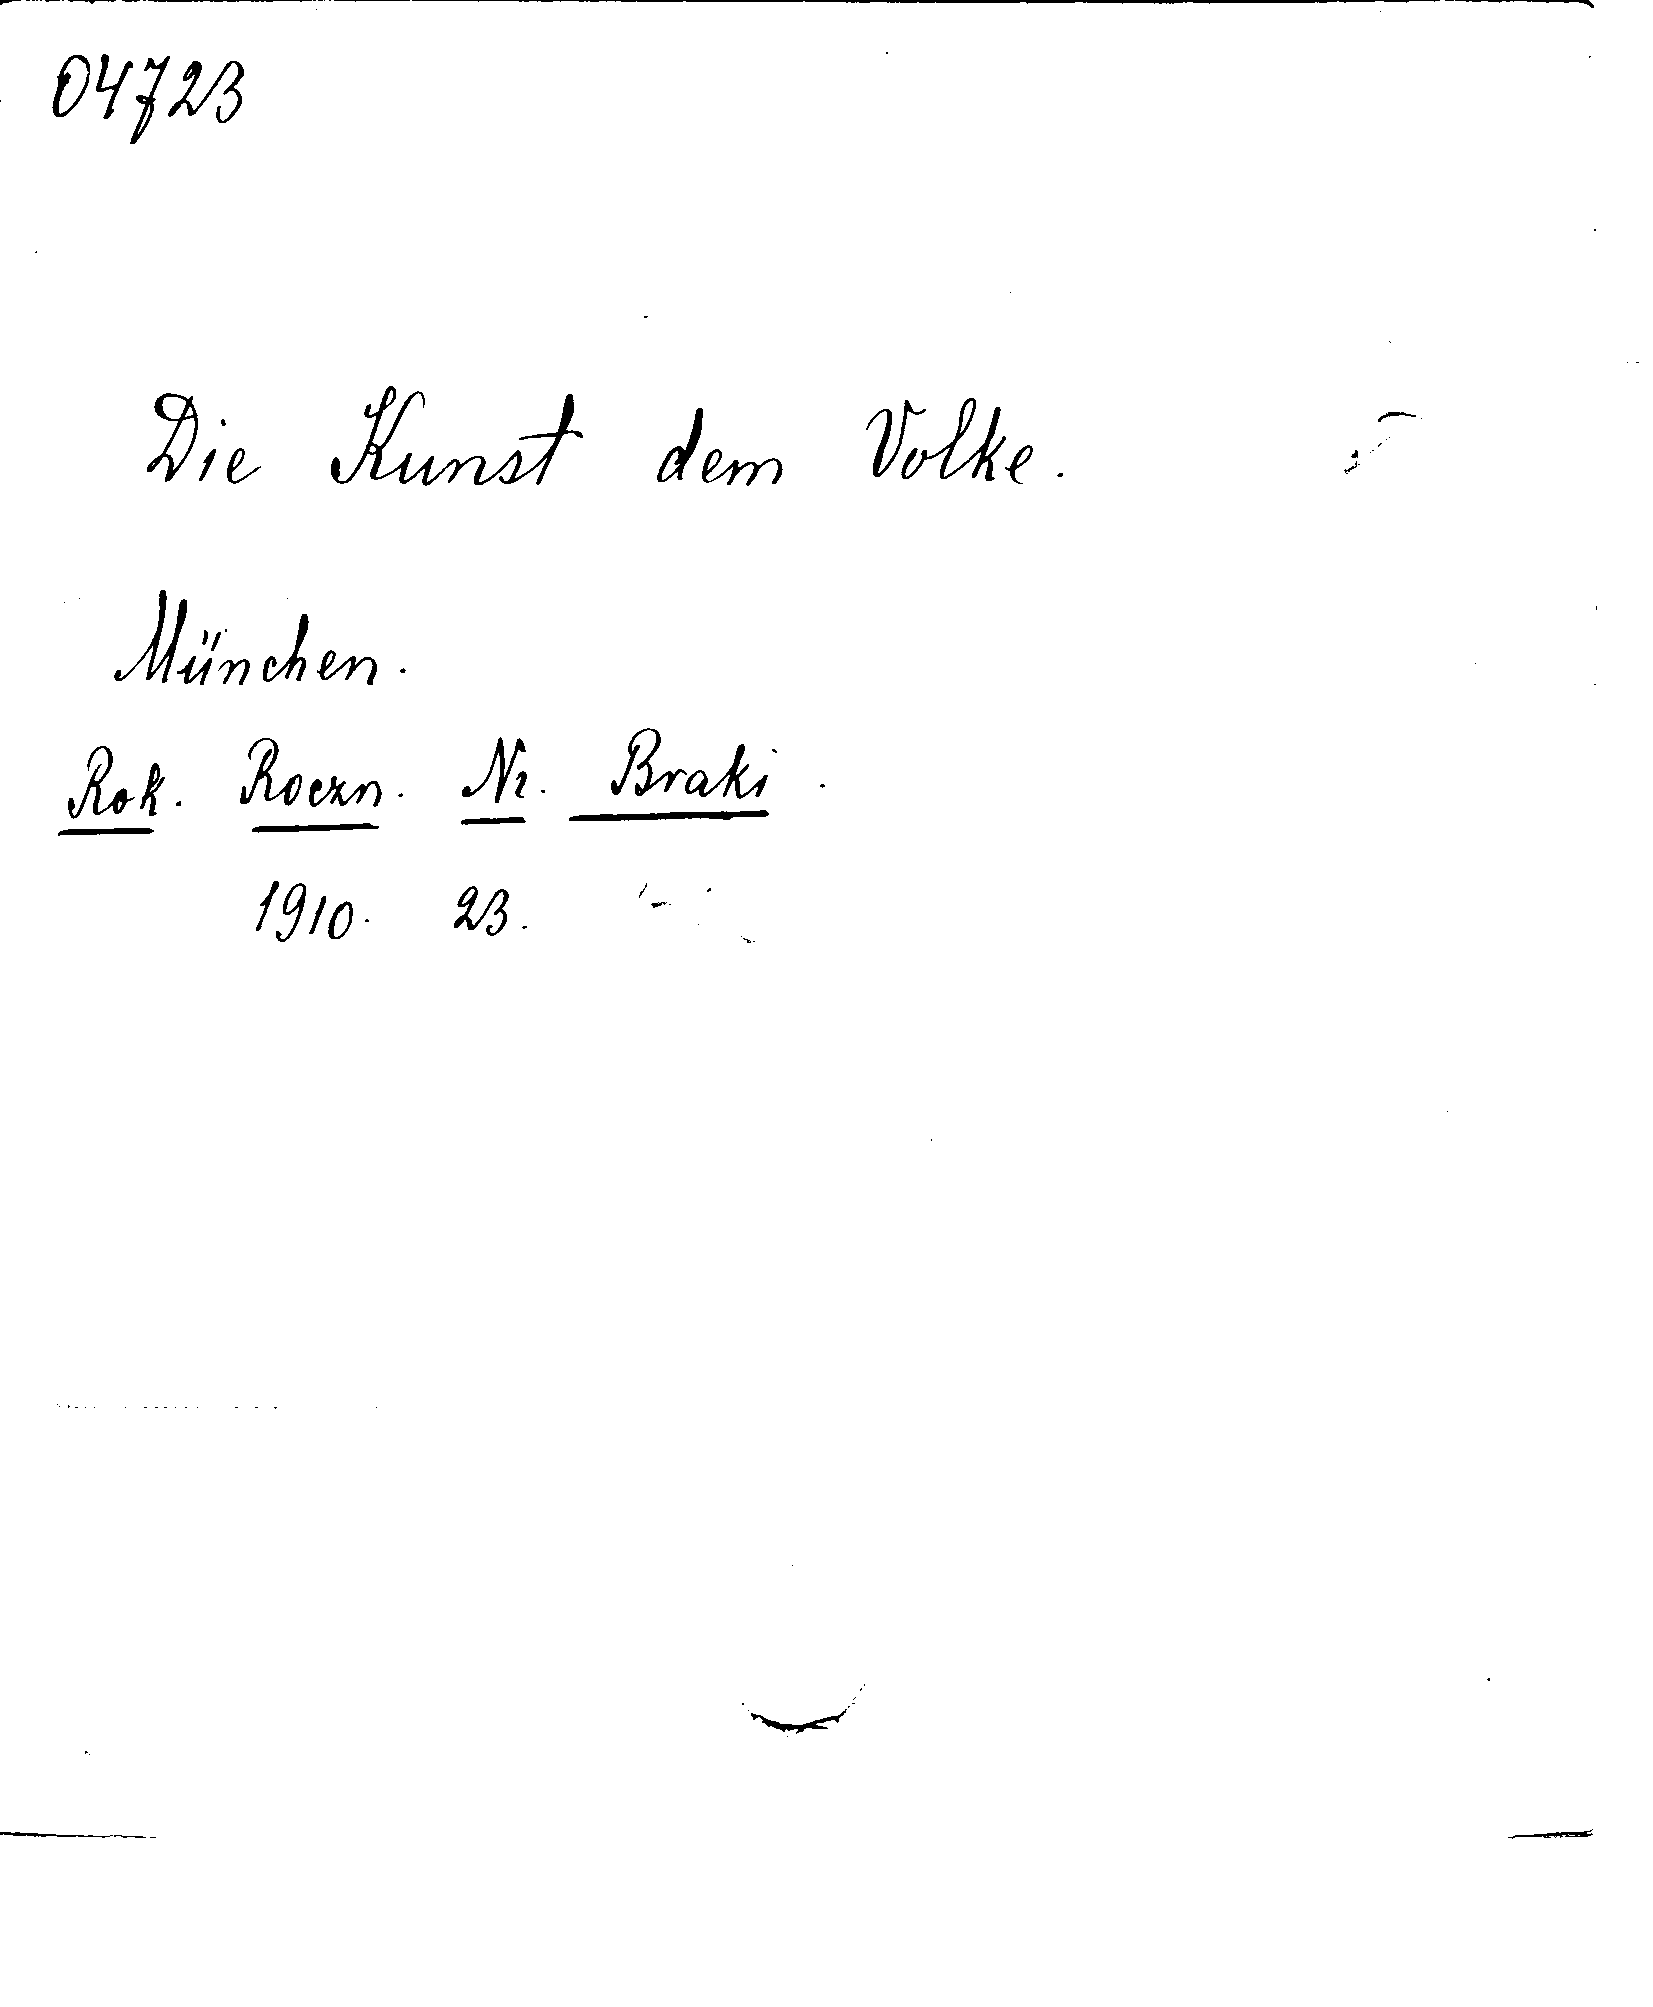 04723
Die Kunst dem Volke.
München.
Rok. Roczn. Nr. Braki.
1910. 23.